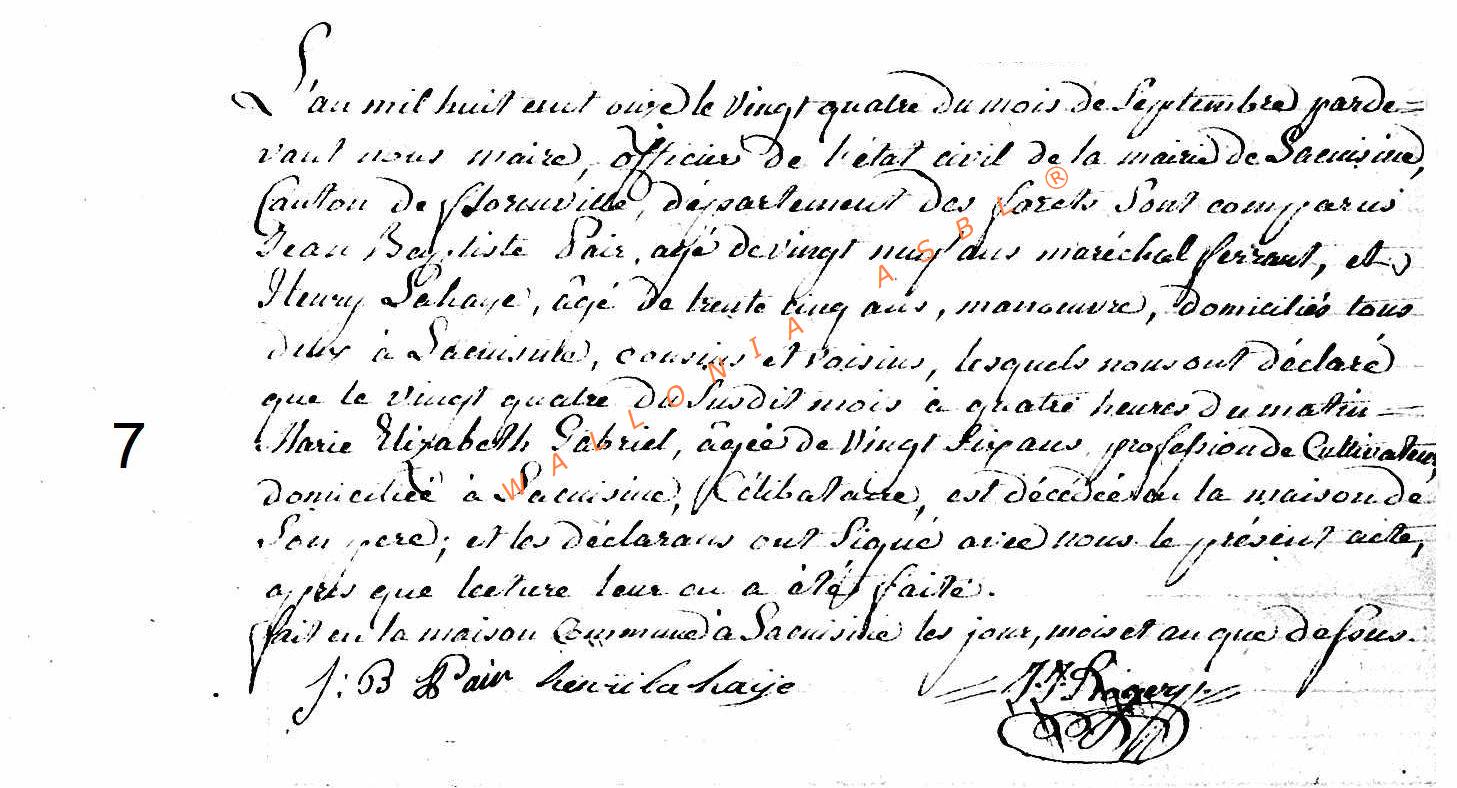 L'an mil huit cent onze le vingt quatre du mois de Septembre parde=
vant nous maire, officier de l'état civil de la mairie de Lacuisine,
Canton de florenville, département des forets Sont comparus
Jean Baptiste Pair, agé de vingt neuf ans maréchal ferrant, et
Henry Lahaye, âgé de trente cinq ans, manoeuvre, domiciliés tous
deux à Lacuisine, cousins et voisins, lesquels nous ont déclaré
que le vingt quatre du Susdit mois à quatre heures du matin =
7
Marie Elizabeth Gabriel, âgée de vingt Six ans, profession de Cultivateur,
domiciliée à Lacuisine, Célibataire, est décédée en la maison de
Son pere; et les déclarans ont Signé avec nous le présent acte,
après que lecture leur en a été faite.
fait en la maison Commune à Lacuisine les jour, mois et an que dessus.
J: B Pair henri la haye J.J. Rogery
WALLONIA ASBL ®